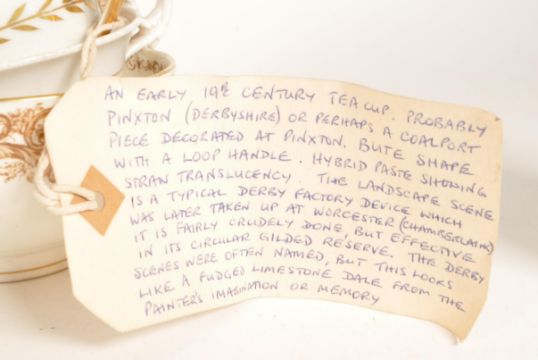 AN EARLY 19th CENTURY TEA CUP. PROBABLY
PINXTON (DERBYSHIRE) OR PERHAPS A COALPORT
PIECE DECORATED AT PINXTON. BUTE SHAPE
WITH A LOOP HANDLE. HYBRID PASTE SHOWING
STRAW TRANSLUCENCY. THE LANDSCAPE SCENE
IS A TYPICAL DERBY FACTORY DEVICE WHICH
WAS LATER TAKEN UP AT WORCESTER (CHAMBERLAINS)
IT IS FAIRLY CRUDELY DONE, BUT EFFECTIVE
IN ITS CIRCULAR GILDED RESERVE. THE DERBY
SCENES WERE OFTEN NAMED, BUT THIS LOOKS
LIKE A FUDGED LIMESTONE DALE FROM THE
PAINTER'S IMAGINATION OR MEMORY